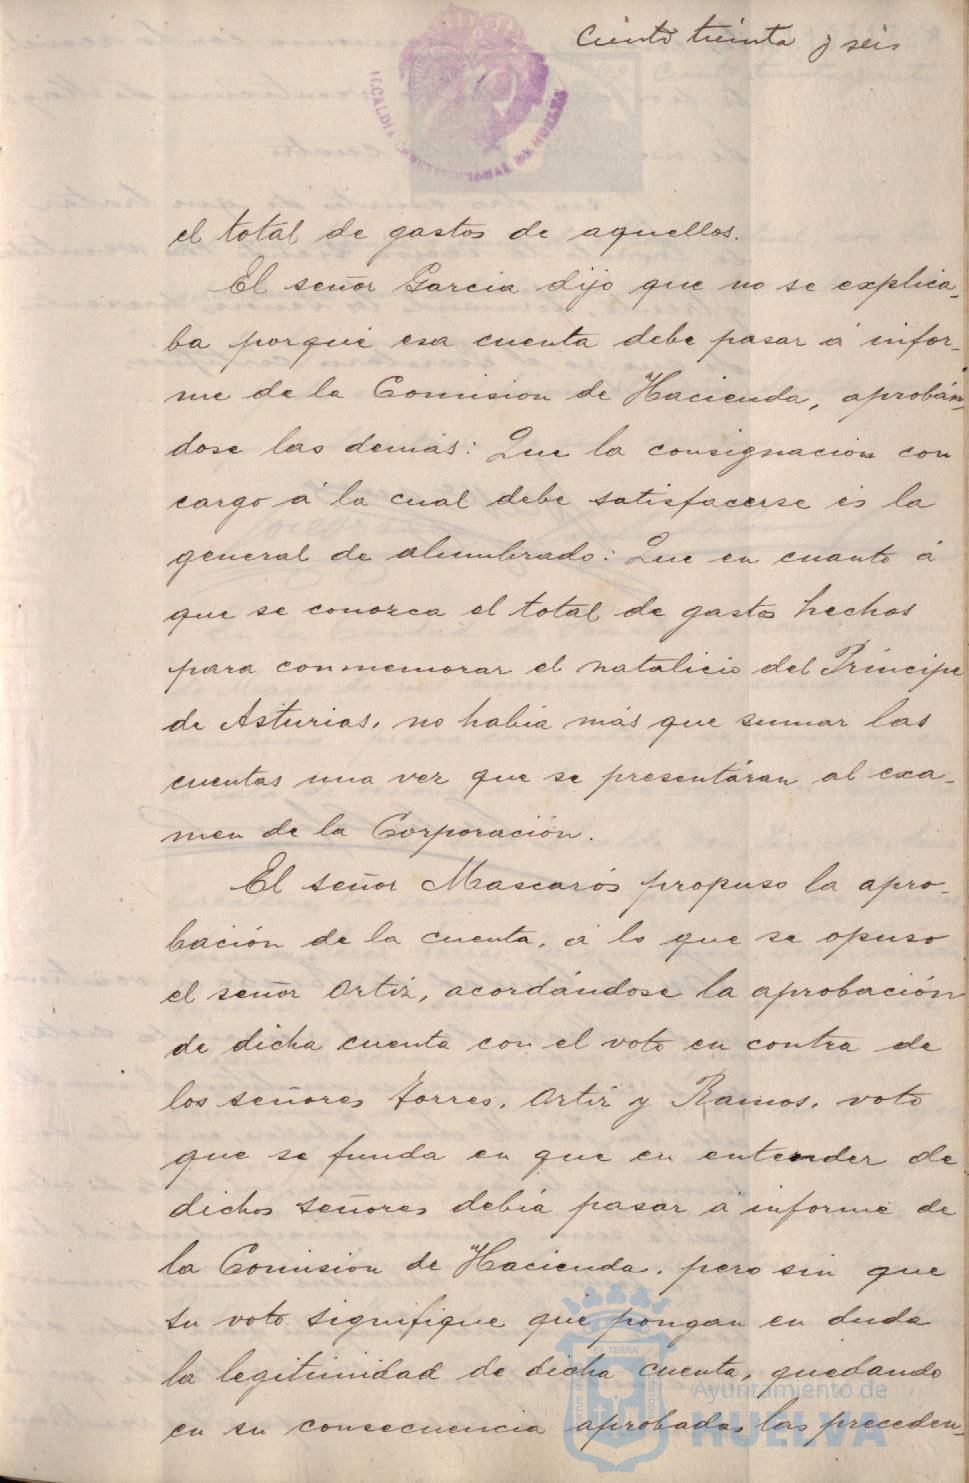 Ciento treinta y seis
ALCALDIA CONSTITUCIONAL DE HUELVA
el total de gastos de aquellos.
El señor García dijo que no se explica-
ba porqué esa cuenta debe pasar á infor-
me de la Comision de Hacienda, aprobán-
dose las demás: Que la consignación con
cargo á la cual debe satisfacerse es la
general de alumbrado: Que en cuanto á
que se conozca el total de gastos hechos
para conmemorar el natalicio del Príncipe
de Asturias, no había más que sumar las
cuentas una vez que se presentáran al exa-
men de la Corporación.
El señor Mascarós propuso la apro-
bación de la cuenta, á lo que se opuso
el señor Ortiz, acordándose la aprobación
de dicha cuenta con el voto en contra de
los señores Torres, Ortiz y Ramos, voto
que se funda en que en entender de
dichos señores debía pasar á informe de
la Comision de Hacienda, pero sin que
su voto signifique que pongan en duda
la legitimidad de dicha cuenta, quedando
en su consecuencia aprobadas las preceden-
Ayuntamiento de
HUELVA